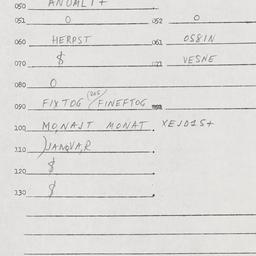 050 ANOMLI+
051 0 052 0
060 HERPST 061 OSSIN
070 $ 071 VESNE
080 0
090 FIXTOG (205) FINEFTOG 091
100 MONAST MONAT. XEJDIS+
110 JANOVAR
120 $
130 $